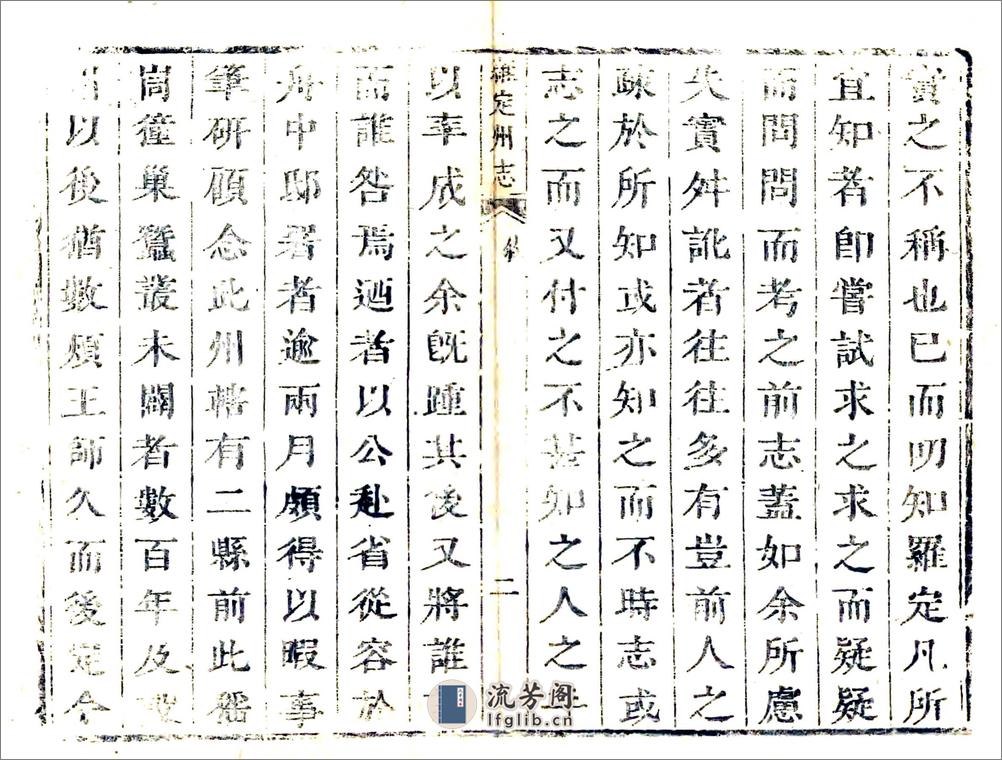 實之不稱也已而明知羅定凡所
宜知者即嘗試求之求之而疑疑
而問問而考之前志蓋如余所慮
失實舛訛者往往多有豈前人之
疎於所知或亦知之而不時志或
志之而又付之不甚知之人之
羅定州志
二
以幸成之余既踵其後又將誰
而誰咎焉迺者以公赴省從容於
舟中邸署者逾兩月頗得以暇事
筆研顧念此州轄有二縣前此猺
峝獞巢蠶叢未闢者數百年及
以後猶數煩王師久而後定今
流芳阁
lfglib.cn